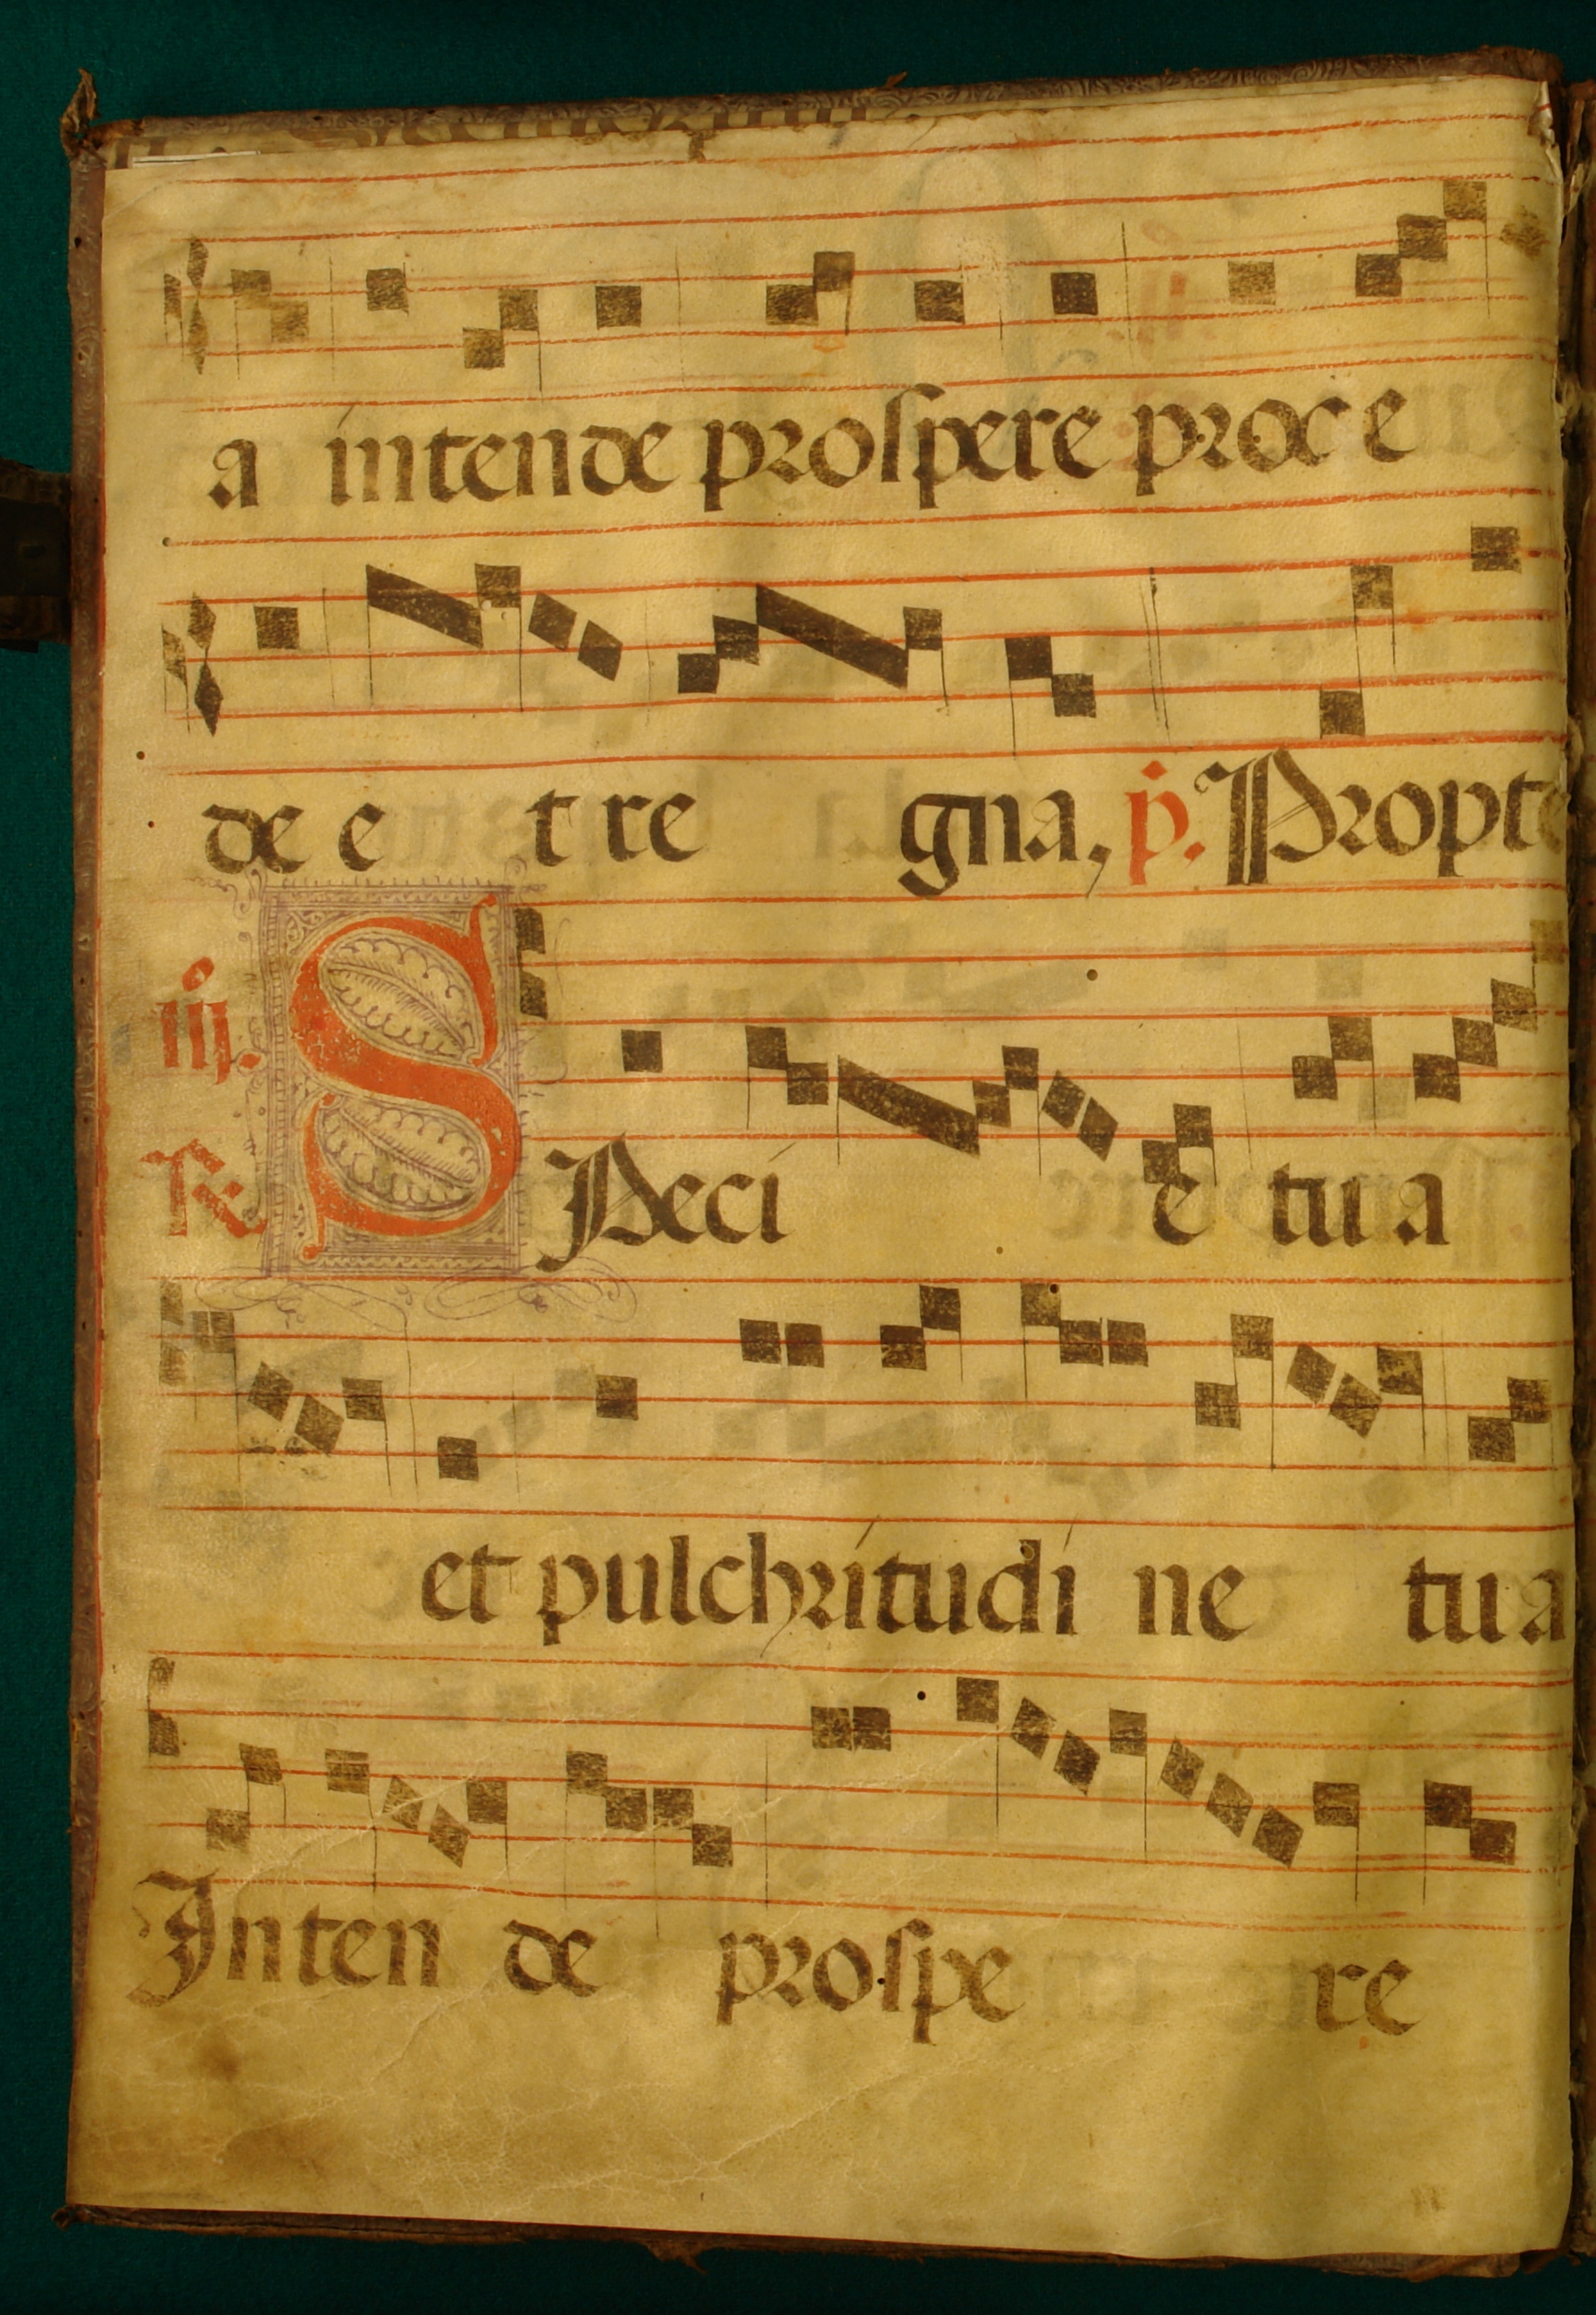 a intende prospere proce
de e t re gna, p. Propte
iij.
R. SPeci e tu a
et pulchritudi ne tu a
Inten de prospe re